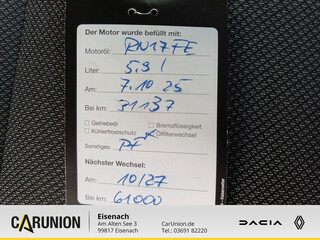 Der Motor wurde befüllt mit:
Motoröl: RN17FE
Liter: 5.9 l
Am: 7.10.25
Bei km: 31137
Getriebeöl Bremsflüssigkeit
Kühlerfrostschutz Ölfilterwechsel
Sonstiges: PF
Nächster Wechsel:
Am: 10/27
Bei km: 61000
CARUNION
Eisenach
Am Alten See 3
99817 Eisenach
CarUnion.de
Tel.: 03691 82220
DACIA